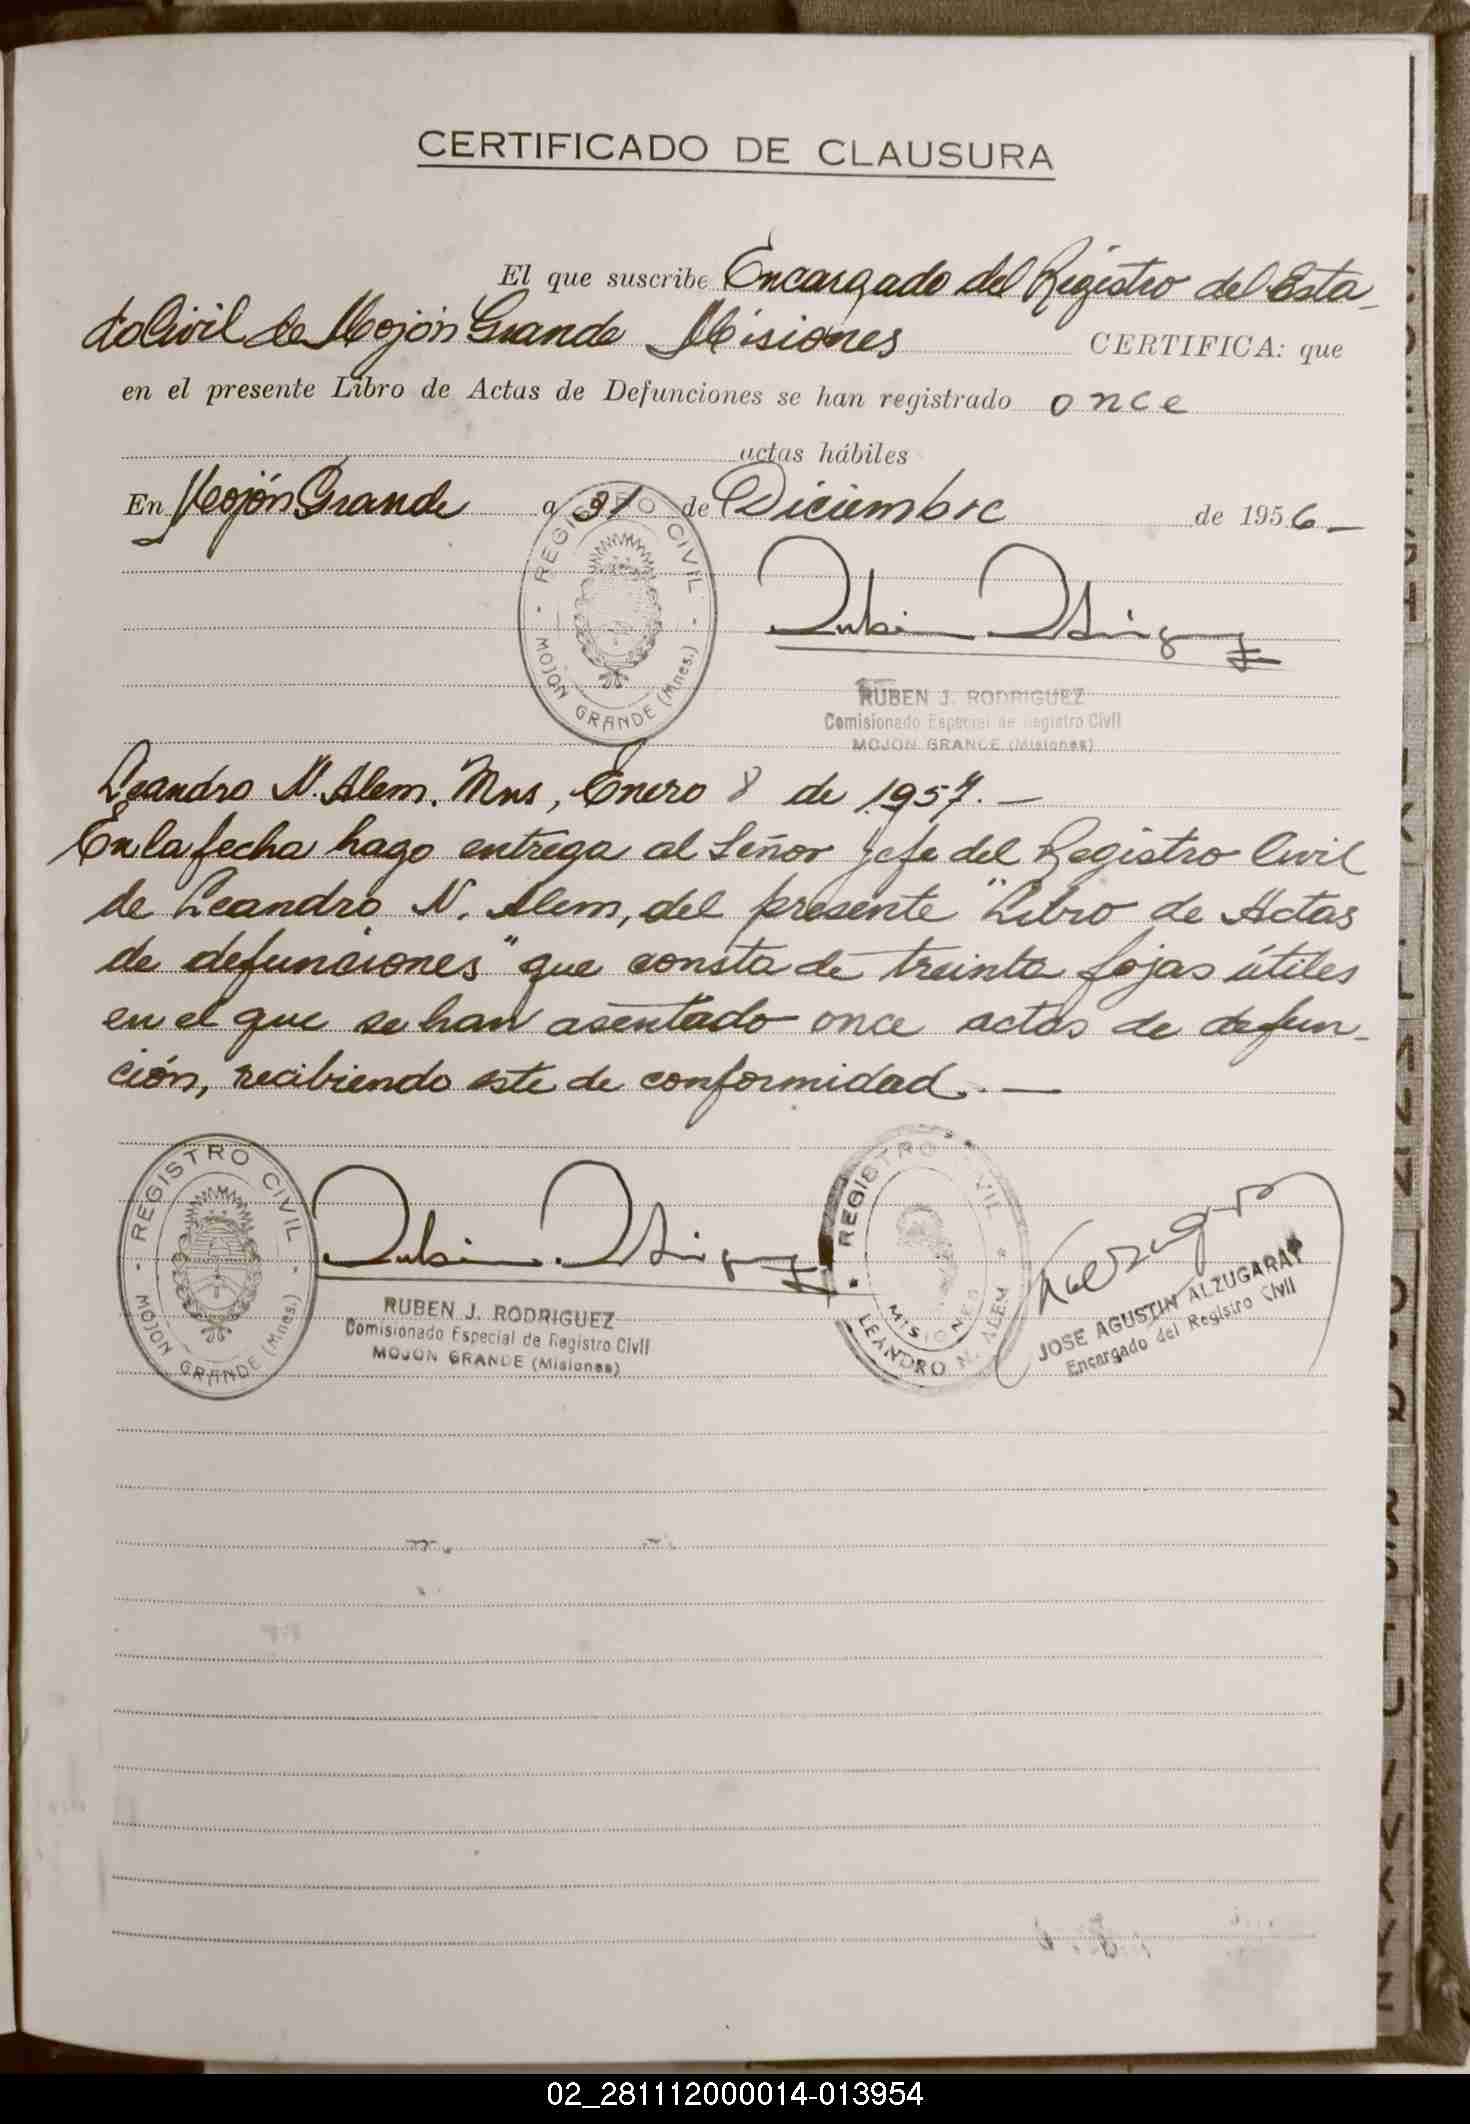 CERTIFICADO DE CLAUSURA
El que suscribe Encargado del Registro del Esta-
do Civil de Mojón Grande Misiones CERTIFICA: que
en el presente Libro de Actas de Defunciones se han registrado once
actas hábiles
En Mojón Grande a 31 de Diciembre de 1956-
REGISTRO CIVIL
MOJON GRANDE (Mnes.)
RUBEN J. RODRIGUEZ
Comisionado Especial de Registro Civil
MOJON GRANDE (Misiones)
Leandro N. Alem. Mns, Enero 8 de 1957.-
En la fecha hago entrega al Señor Jefe del Registro Civil
de Leandro N. Alem, del presente "Libro de Actas
de defunciones" que consta de treinta fojas útiles
en el que se han asentado once actas de defun-
ción, recibiendo este de conformidad.-
REGISTRO CIVIL
MOJON GRANDE (Mnes.)
RUBEN J. RODRIGUEZ
Comisionado Especial de Registro Civil
MOJON GRANDE (Misiones)
REGISTRO CIVIL
MISIONES
LEANDRO N. ALEM
JOSE AGUSTIN ALZUGARAY
Encargado del Registro Civil
02_281112000014-013954